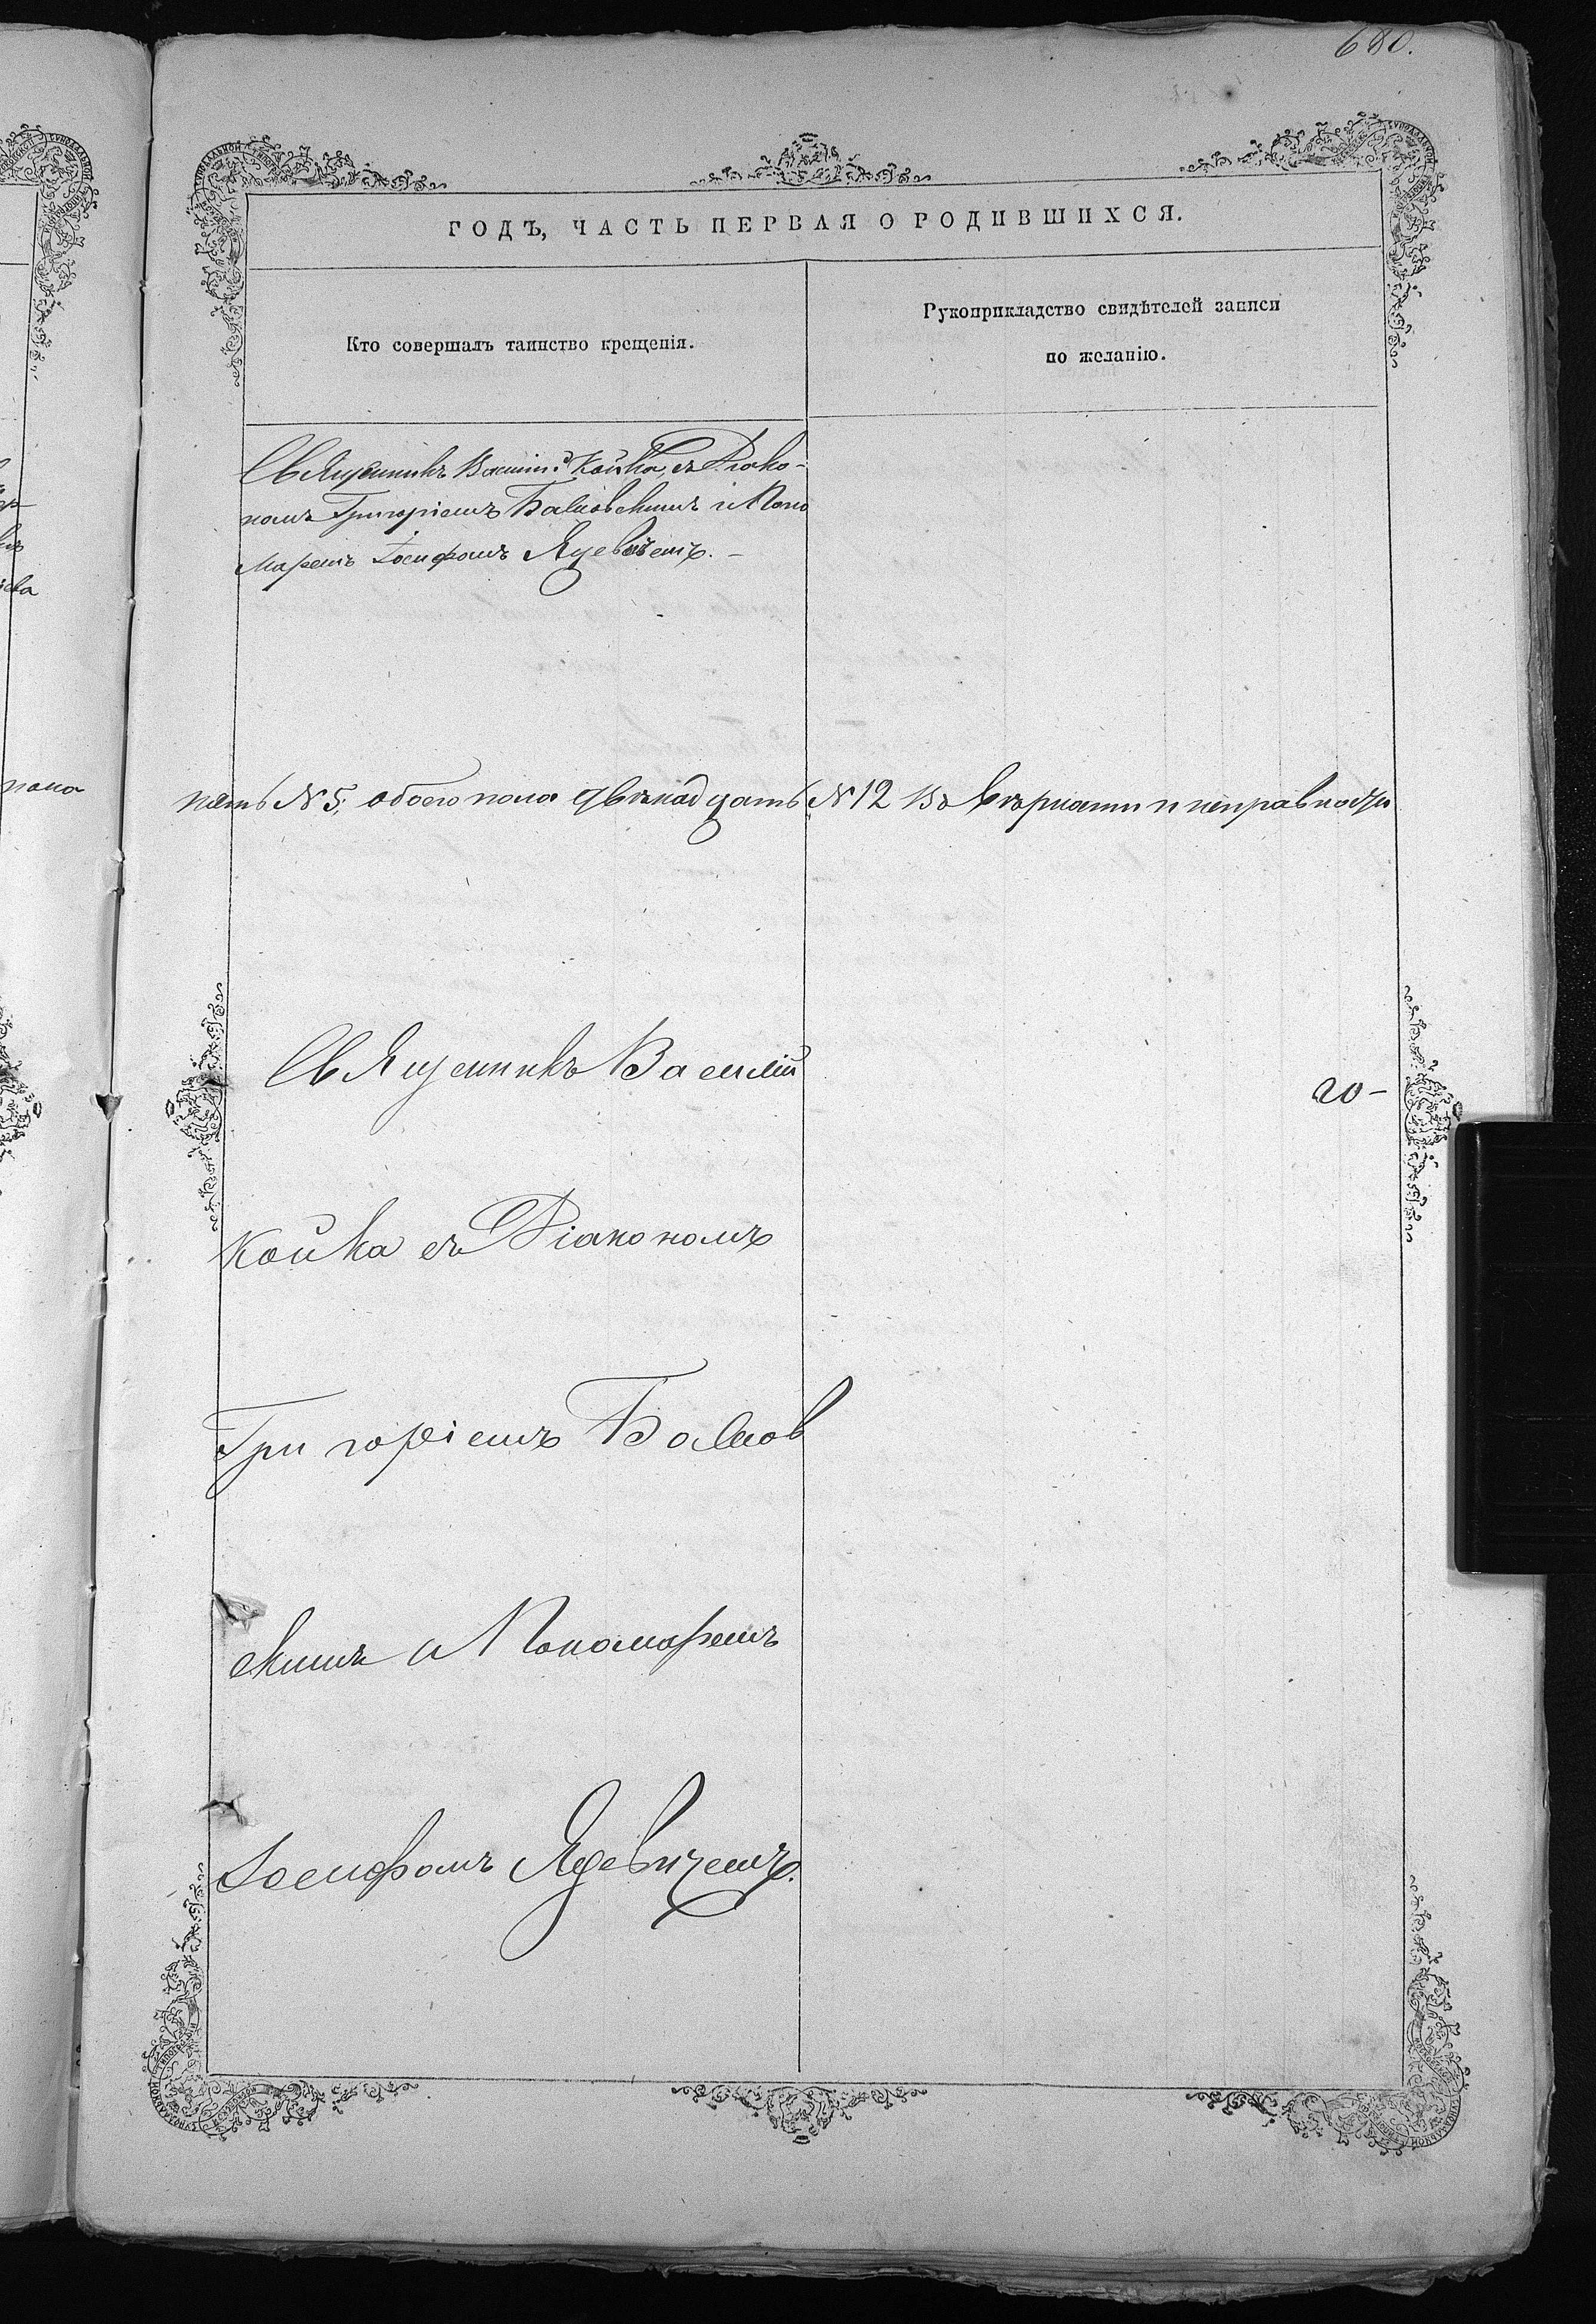 680.
ГОДЪ, ЧАСТЬ ПЕРВАЯ О РОДИВШИХСЯ.
Кто совершалъ таинство крещенія.
Рукоприкладство свидѣтелей записи
по желанію.
Священникъ Василій Койка, съ Діако-
номъ Григоріемъ Балковскимъ и Поно
маремъ Іосифомъ Яцевичемъ. –
пять № 5; обоего пола двѣнадцать № 12 Въ вѣрности и исправности
Священникъ Василій
20 –
Койка съ Діакономъ
Григоріемъ Балков
скимъ и Пономаремъ
Іосифомъ Яцевичемъ.